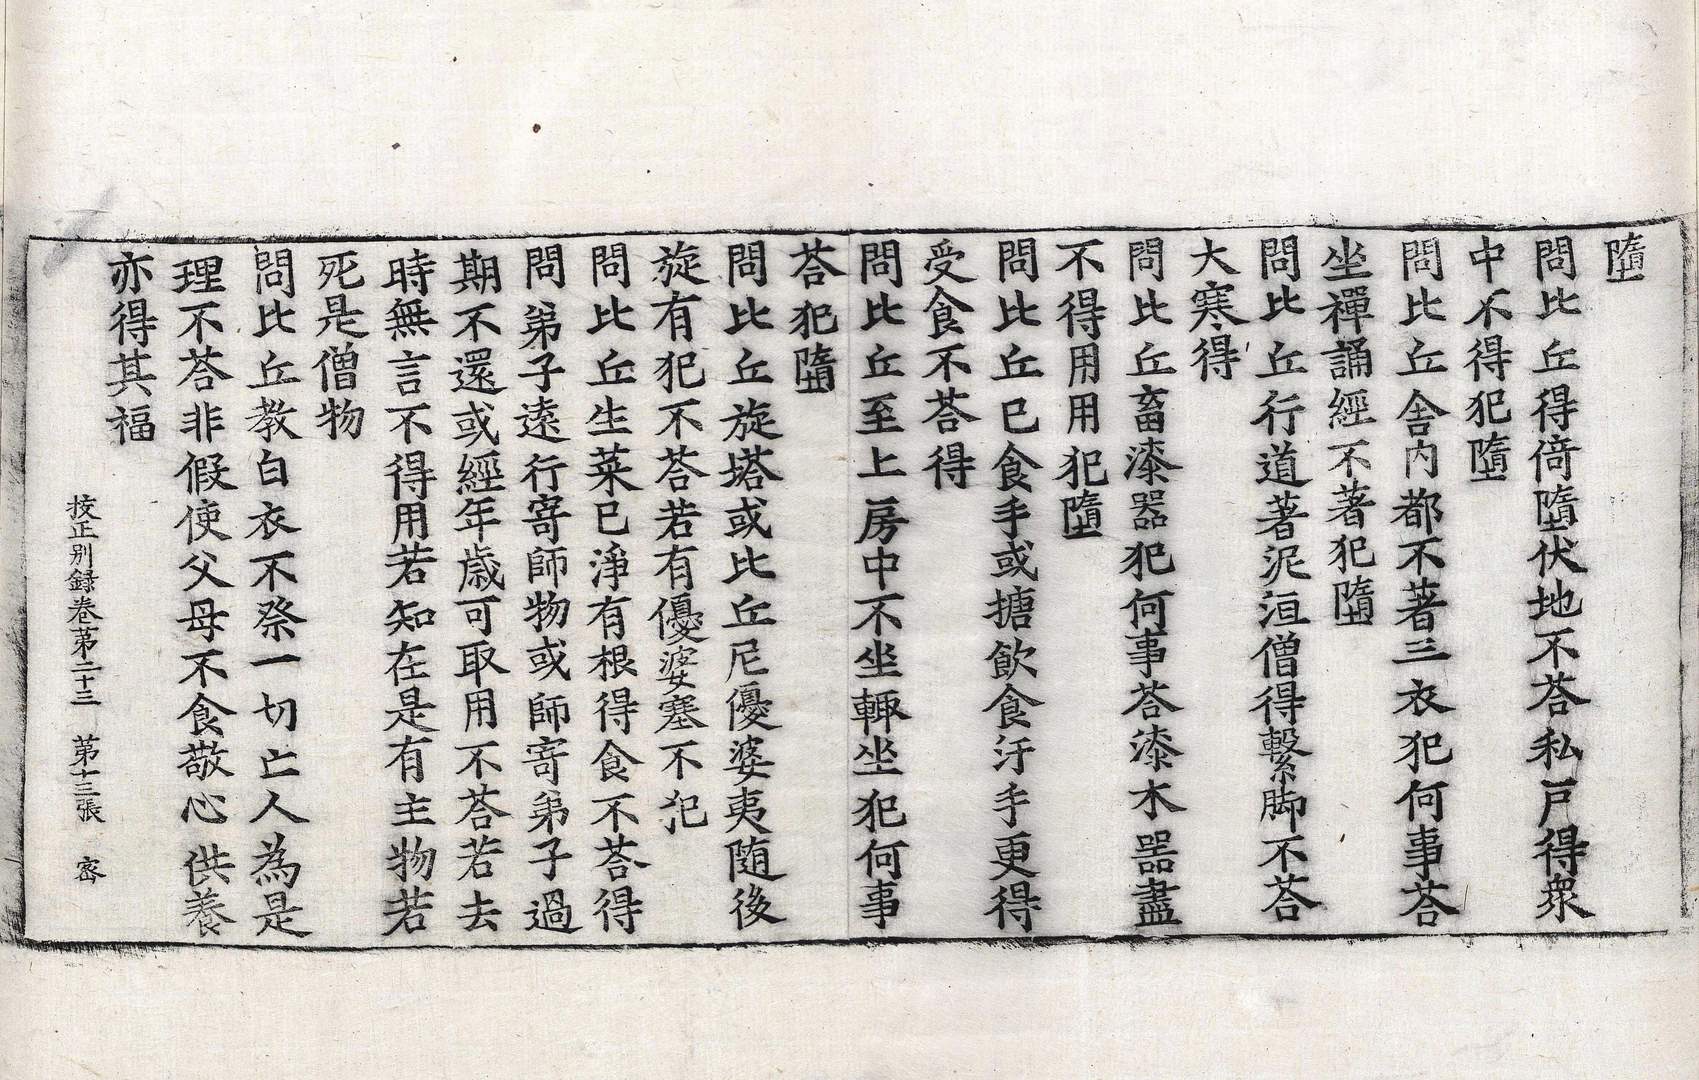 墮
問比丘得倚墮伏地不荅私戸得衆
中不得犯墮
問比丘舍内都不著三衣犯何事荅
坐禪誦經不著犯墮
問比丘行道著泥洹僧得繫脚不荅
大寒得
問比丘畜漆器犯何事荅漆木器盡
不得用用犯墮
問比丘已食手或搪飲食汙手更得
受食不荅得
問比丘至上房中不坐輙坐犯何事
荅犯墮
問比丘旋塔或比丘尼優婆夷随後
旋有犯不荅若有優婆塞不犯
問比丘生菜已淨有根得食不荅得
問弟子遠行寄師物或師寄弟子過
期不還或經年歳可取用不荅若去
時無言不得用若知在是有主物若
死是僧物
問比丘教白衣不祭一切亡人為是
理不荅非假使父母不食敬心供養
亦得其福
挍正别録卷苐二十三 苐十三張 宻